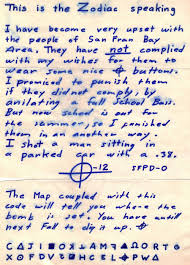 This is the Zodiac speaking
I have become very upset with
the people of San Fran Bay
Area. They have not complied
with my wishes for them to
wear some nice ⌖ buttons.
I promiced to punish them
if they did not comply, by
anilating a full School Buss.
But now school is out for
the summer, so I punished
them in an another way.
I shot a man sitting in
a parked car with a .38.
⌖-12 SFPD-0
The Map coupled with this
code will tell you where the
bomb is set. You have untill
next Fall to dig it up. ⌖